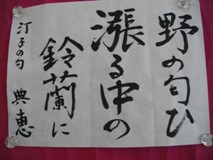 野の匂ひ
漲る中の
鈴蘭に
汀子の句 典恵